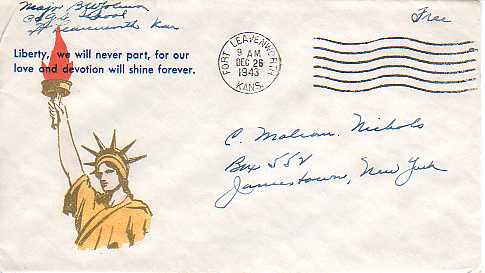 Major
School
Leavenworth Kan
Free
Liberty, we will never part, for our
love and devotion will shine forever.
FORT LEAVENWORTH
9 AM
DEC 26
1943
KANS.
C. Malcom. Nichols
Box 552
Jamestown, New York